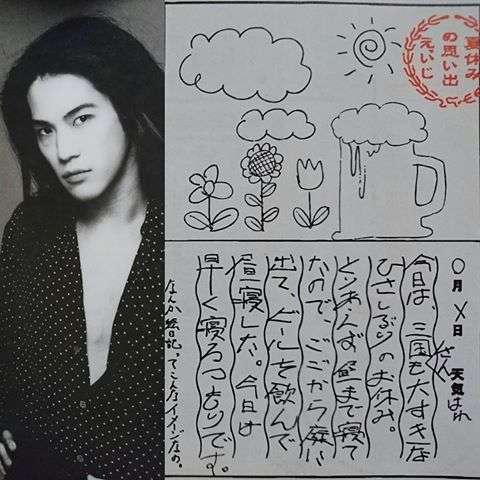 夏休み
の思い出
えいじ
〇月X日 天気 はれ
今日は、三国さんも大すきな
ひさしぶりのお休み。
とりあえず昼まで寝て
たので、ごごから庭に
出て、ビールを飲んで
昼寝した。今日は
早く寝るつもりです。
なんか絵日記ってこんなイメージなの。